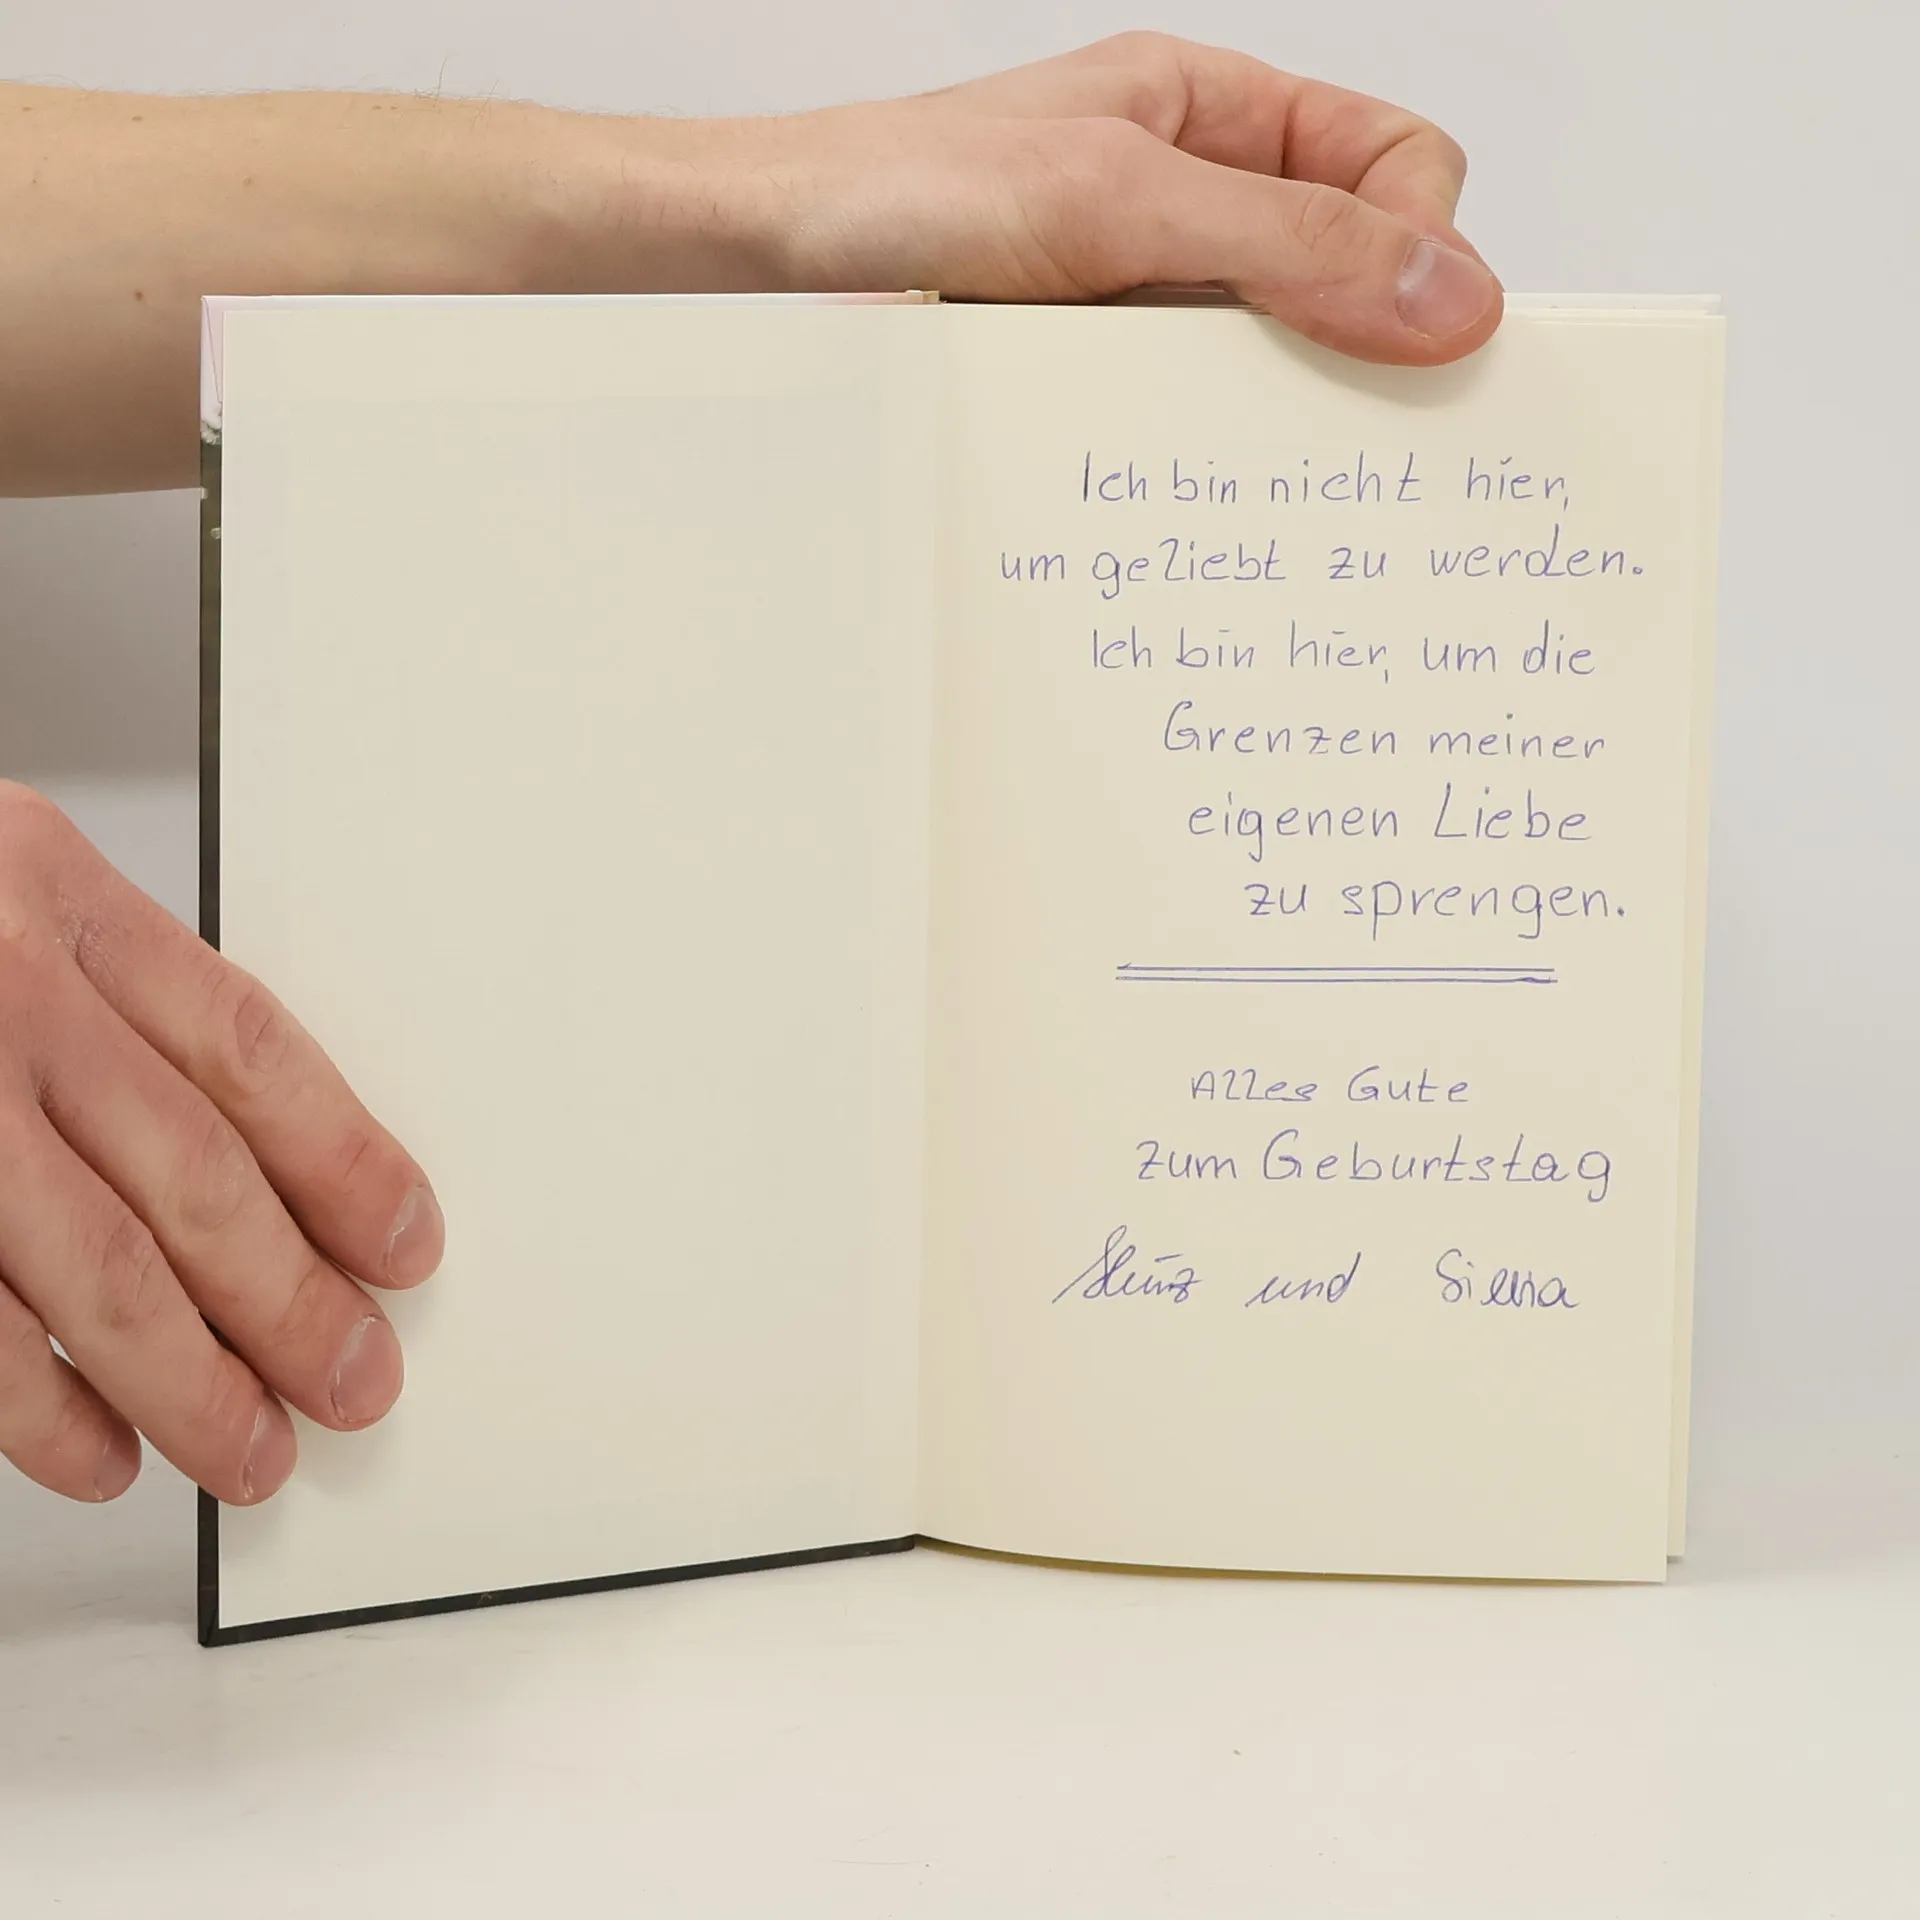 Ich bin nicht hier,
um geliebt zu werden.
Ich bin hier, um die
Grenzen meiner
eigenen Liebe
zu sprengen.
Alles Gute
zum Geburtstag
und